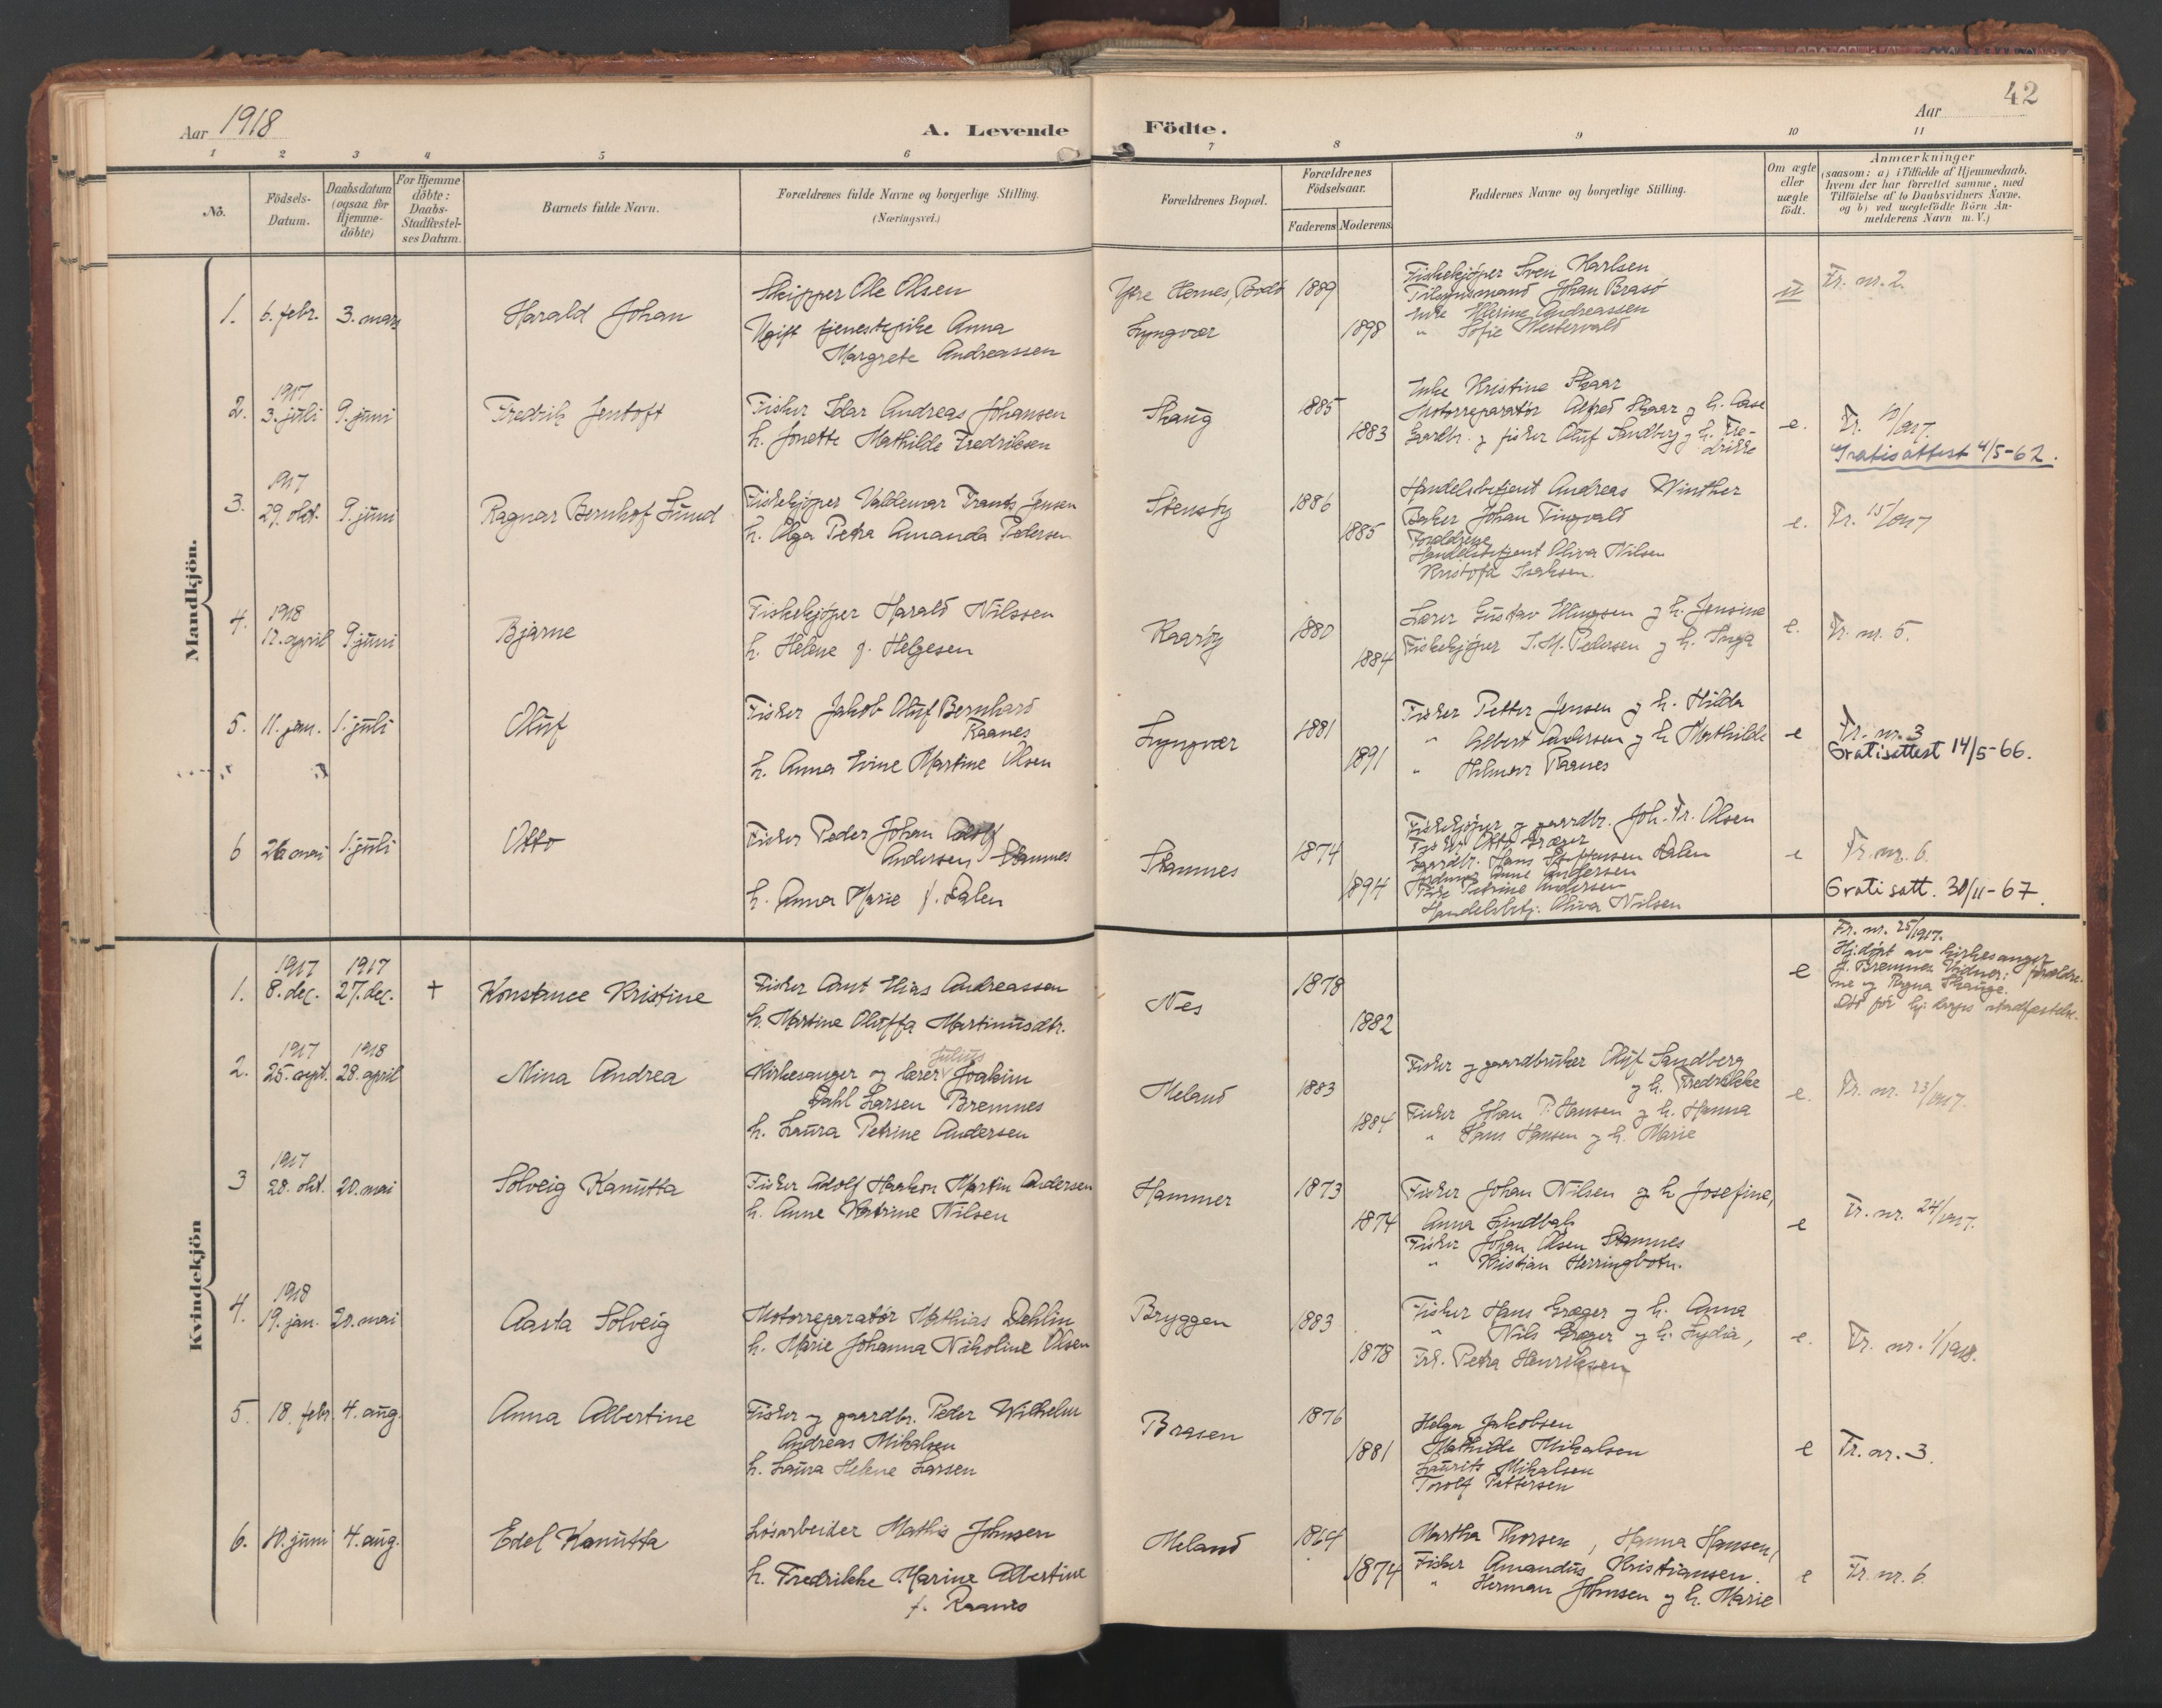 Aar 1918
A. Levende Födte.
Aar
42
1 2 3 4 5 6 7 8 9 10 11
No.
Födsels-
Datum.
Daabsdatum
(ogsaa for
Hjemme-
döbte)
For Hjemme
döbte:
Daabs-
Stadfæstel-
ses Datum.
Barnets fulde Navn.
Forældrenes fulde Navne og borgerlige Stilling.
(Næringsvei.)
Forældrenes Bopæl.
Forældrenes
Födselsaar.
Faderens Moderens
Faddernes Navne og borgerlige Stilling.
Om ægte
eller
uægte
födt.
Anmærkninger
(saasom: a) i Tilfælde af Hjemmedaab.
hvem der har forrettet samme, med
Tilföielse af to Daabsvidners Navne.
og b) ved uægtefödte Börn An-
melderens Navn m. V.)
Mandkjön.
1. 6. febr. 3. mars
Harald Johan
Skipper Ole Olsen
Ugift tjenestepike Anna
Margrete Andreassen
Ytre Hernes, Bodø
Lyngvær
1889
1898
Fiskekjøper Sven Karlsen
Tilsynsmand Johan Brasø
Enke Elerine Andreassen
" Sofie Westervald
u
Fr. nr. 2.
2. 1917
3. juli 9. juni
Fredrik Jentoft
Fisker Idar Andreas Johansen
h. Jonette Mathilde Fredriksen
Skaug
1885
1883
Enke Kristine Skaar
Motorreparatør Alfred Skaar og h. Aase
Gaardbr. og fisker Oluf Sandberg og h. Fre-
drikke
e.
Fr. 10/1917.
Gratisattest 4/5-62.
3. 1917
29. okt. 9. juni
Ragnar Bernhof Lund
Fiskekjøper Valdemar Frants Jensen
h. Olga Petra Amanda Pedersen
Stensøy
1886
1885
Handelsbetjent Andreas Winther
Baker Johan Tingvald
Forældrene
Handelsbetjent Oliva Nilsen
Kristofa Isaksen.
e.
Fr. 15/1917
4. 1918
12. april 9 juni
Bjarne
Fiskekjøper Harald Nilssen
h. Helene f. Helgesen
Kaarøy
1880
1884
Lærer Gustav Ellingsen og h. Jensine
Fiskekjøper I. M. Pedersen og h. Inga
e.
Fr. nr. 5.
5. 11. jan. 1. juli
Oluf
Fisker Jakob Oluf Bernhard
Raanes
h. Anna Evine Martine Olsen
Lyngvær
1881
1891
Fisker Petter Jensen og h. Hilda
" Albert Andersen og h Mathilde
" Hilmar Raanes
e
Fr. nr. 3
Gratisattest 14/5-66.
6 26 mai 1. juli
Otto
Fisker Peder Johan Adolf
Andersen Stamnes
h. Anna Marie f. Dalen
Stamnes
1874
1894
Fiskekjøper og gaardbr. Joh. Fr. Olsen
Fisker Otto Græger
Gaardbr. Hans Steffensen Dalen
Jordmor Anne Andersen
Pike Petrine Andersen
Handelsbetj. Oliva Nilsen
e
Fr. nr. 6.
Gratisatt. 30/11-67.
Kvindekjön
1. 1917 1917
8. dec. 27. dec. +
Konstance Kristine
Fisker Arnt Elias Andreassen
h. Martine Oluffa Martinusdtr.
Nes
1878
1882
e
Fr. nr. 25/1917.
Hj.døpt av kirkesanger
J. Bremnes. Vidner: foreldre-
ne og Ragna Skauge.
Død før hj. daaps stadfæstelse.
2. 1917 1918
25. sept. 28. april
Mina Andrea
Julius
Kirkesanger og lærer Joakim
Dahl Larsen Bremnes
h. Laura Petrine Andersen
Meland
1883
1884
Fisker og gaardbruker Oluf Sandberg
og h. Fredrikke
Fisker Johan P. Hansen og h. Hanna
" Hans Hansen og h. Marie
e.
Fr. nr. 23/1917.
3 1917
28. okt. 20. mai
Solveig Kanutta
Fisker Adolf Haakon Martin Andersen
h. Anne Katrine Nilsen
Hammer
1873
1874
Fisker Johan Nilsen og h Josefine,
Anna Lindbak
Fisker Johan Olsen Stamnes
" Kristian Herringbotn.
e
Fr. nr. 24/1917.
4. 1918
19. jan. 20. mai
Aasta Solveig
Motorreparatør Mathias Dahlin
h. Marie Johanna Nikoline Olsen
Bryggen
1883
1878
Fisker Hans Græger og h. Anna
" Nils Græger og h. Lydia,
Frk. Petra Henriksen
e.
Fr. nr. 1/1918.
5. 18. febr. 4. aug.
Anna Albertine
Fisker og gaardbr. Peder Wilhelm
Andreas Mikalsen
h. Laura Helene Larsen
Brasen
1876
1881
Helga Jakobsen
Mathilde Mikalsen
Laurits Mikalsen
Torolf Pettersen
e
Fr. nr. 3.
6. 10. juni 4. aug.
Edel Kanutta
Løsarbeider Mathis Johnsen
h. Fredrikke Marine Albertine
f. Raanes
Meland
1864
1874
Martha Thorsen, Hanna Hansen,
Fisker Amandus Kristiansen.
" Herman Johnsen og h. Marie
e
Fr. nr. 6.